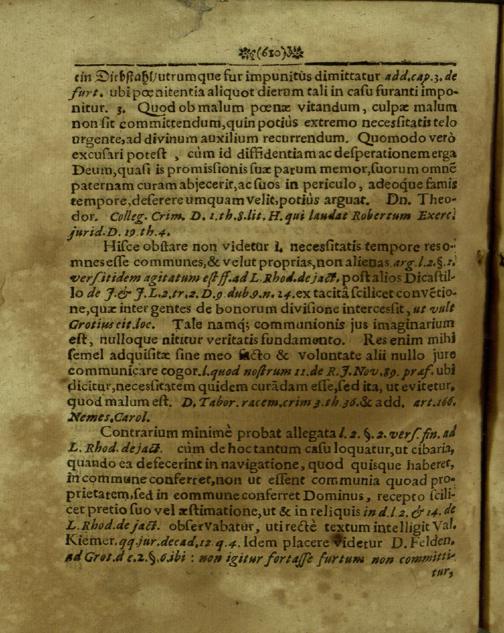 (610)
ein Diebstahl/utrumque fur impunitùs dimittatur add. cap. 3. de
furt. ubi pœnitentia aliquot dierum tali in casu furanti impo-
nitur. 3. Quod ob malum pœnæ vitandum, culpæ malum
non sit committendum, quin potiùs extremo necessitatis telo
urgente, ad divinum auxilium recurrendum. Quomodo verò
excusari potest, cùm id diffidentiam ac desperationem erga
Deum, quasi is promissionis suæ parum memor, suorum omnē
paternam curam abjecerit, ac suos in periculo, adeoque famis
tempore, deserere umquam velit, potiùs arguat. Dn. Theo-
dor. Colleg. Crim. D. 1. th. 8. lit. H. qui laudat Robertum Exerc.
jurid. D. 19. th. 4.
Hisce obstare non videtur 1. necessitatis tempore res o-
mnes esse communes, & velut proprias, non alienas arg. l. 2. §. 2.
vers. itidem agitatum est ff. ad L. Rhod. de jact. post alios Dicastil-
lo de J. & J. L. 2. tr. 2. D. 9 dub. 9. n. 14. ex tacitâ scilicet convētio-
ne, quæ inter gentes de bonorum divisione intercessit, ut vult
Grotius cit. loc. Tale namq; communionis jus imaginarium
est, nulloque nititur veritatis fundamento. Res enim mihi
semel adquisitæ sine meo facto & voluntate alii nullo jure
communicare cogor. l. quod nostrum 11. de R. J. Nov. 89. præf. ubi
dicitur, necessitatem quidem curādam esse, sed ita, ut evitetur,
quod malum est. D. Tabor. racem. crim 3. th. 36. & add. art. 166.
Nemes. Carol.
Contrarium minimè probat allegata l. 2. §. 2. vers. fin. ad
L. Rhod. de jact. cùm de hoc tantum casu loquatur, ut cibaria,
quando ea defecerint in navigatione, quod quisque haberet,
in commune conferret, non ut essent communia quoad pro-
prietatem, sed in eommune conferret Dominus, recepto scili-
cet pretio suo vel æstimatione, ut & in reliquis in d. l 2. & 14. de
L. Rhod. de jact. observabatur, uti rectè textum intelligit Val.
Kiemer. qq. jur. decad. 12. q. 4. Idem placere videtur D. Felden.
ad Grot. d c. 2. §. 6. ibi: non igitur fortasse furtum non committi-
tur,